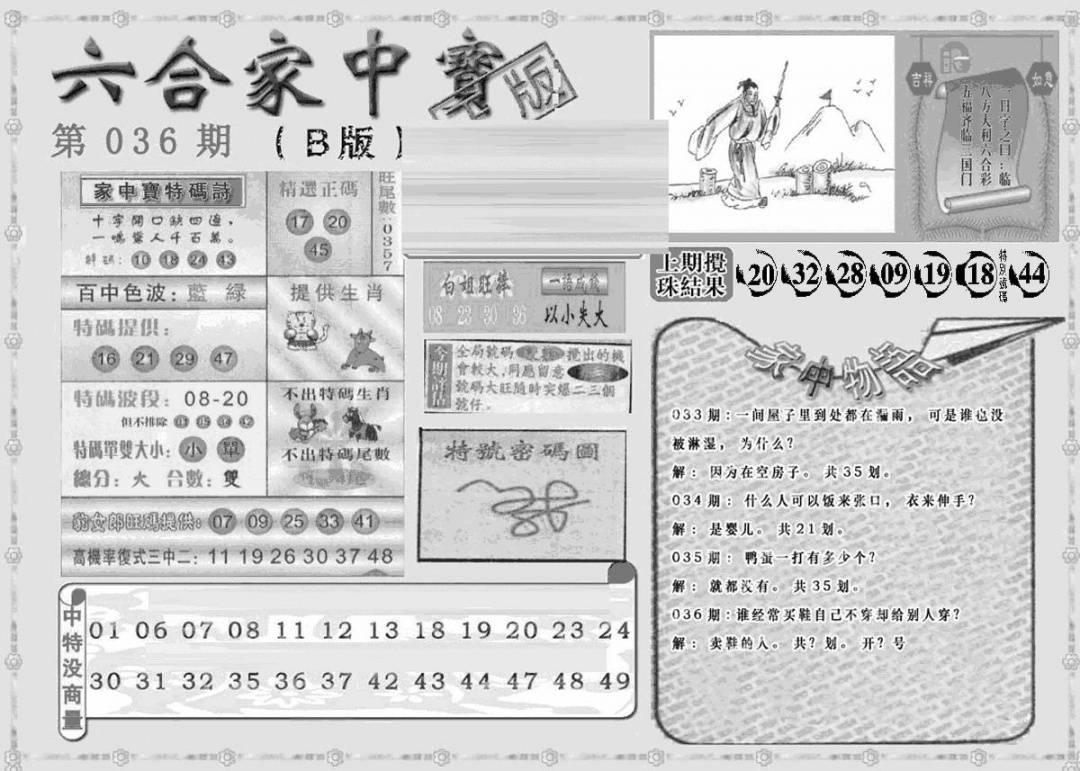 六合家中寶
版
第 036 期 （B版）
家中寶特碼詩
十字開口缺四邊，
一鳴驚人千百萬。
解碼: 10 18 24 43
精選正碼
17 20
45
旺尾數:0357
百中色波: 藍 綠
提供生肖
特碼提供:
16 21 29 47
特碼波段: 08-20
但不排除
特碼單雙大小: 小 單
總分: 大 合數: 雙
不出特碼生肖
不出特碼尾數
旺碼提供: 07 09 25 33 41
高機率復式三中二: 11 19 26 30 37 48
白姐旺
08 23 30 36
一語成
以小失大
今期
全局號碼
攪出的機
會較大,同應留意
號碼大旺隨時突爆二三個
號仔。
特號密碼圖
中特没商量
01 06 07 08 11 12 13 18 19 20 23 24
30 31 32 35 36 37 42 43 44 47 48 49
吉祥
如意
一日字之曰:临
八方大利六合彩
五福齐临三国门
上期攪
珠結果
20 32 28 09 19 18
特別號碼
44
家中物語
033期:一间屋子里到处都在漏雨， 可是谁也没
被淋湿， 为什么?
解: 因为在空房子。 共35划。
034期: 什么人可以饭来张口， 衣来伸手?
解: 是婴儿。 共21划。
035期: 鸭蛋一打有多少个?
解: 就都没有。 共35划。
036期:谁经常买鞋自己不穿却给别人穿?
解: 卖鞋的人。 共? 划。 开? 号